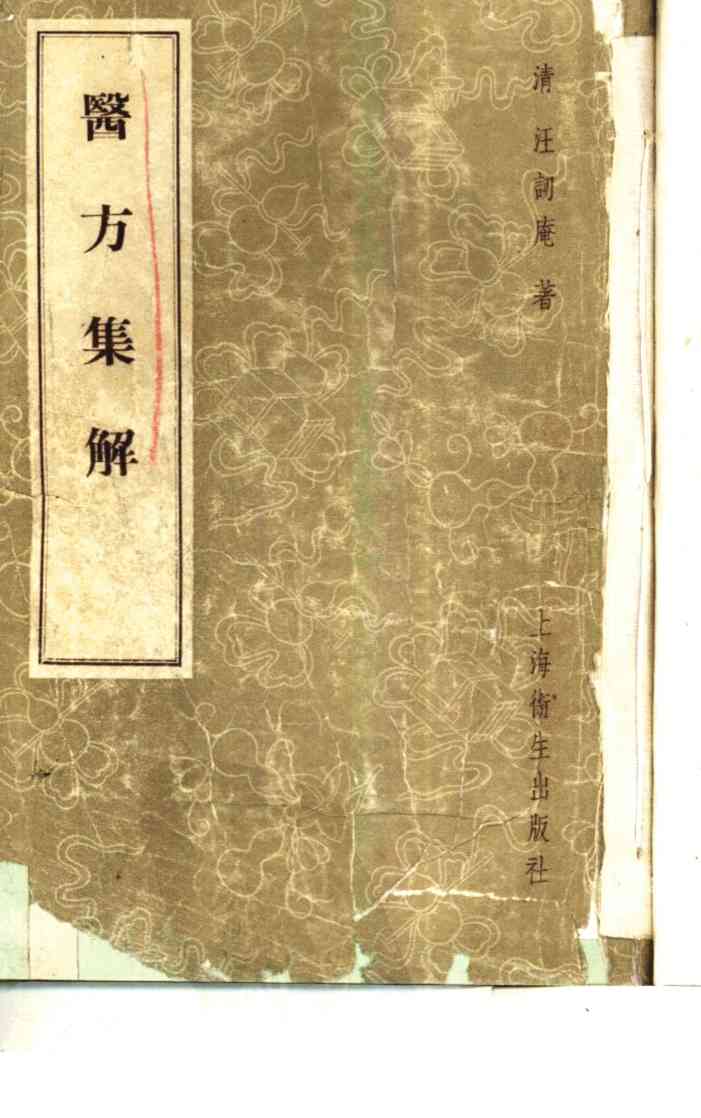 清 汪訒庵 著
醫方集解
上海衛生出版社